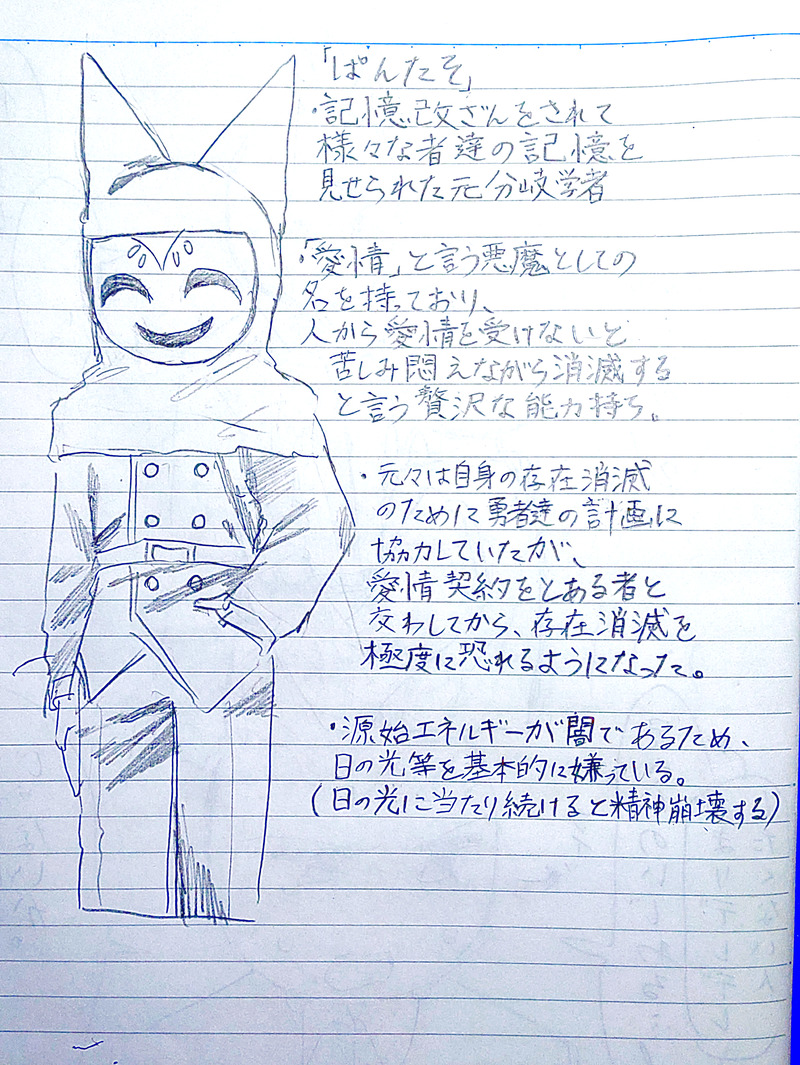 「ぱんたそ」
・記憶改ざんをされて
様々な者達の記憶を
見せられた元分岐学者
・「愛情」と言う悪魔としての
名を持っており、
人から愛情を受けないと
苦しみ悶えながら消滅する
と言う贅沢な能力持ち。
・元々は自身の存在消滅
のために勇者達の計画に
協力していたが、
愛情契約をとある者と
交わしてから、存在消滅を
極度に恐れるようになった。
・源始エネルギーが闇であるため、
日の光等を基本的に嫌っている。
(日の光に当たり続けると精神崩壊する)